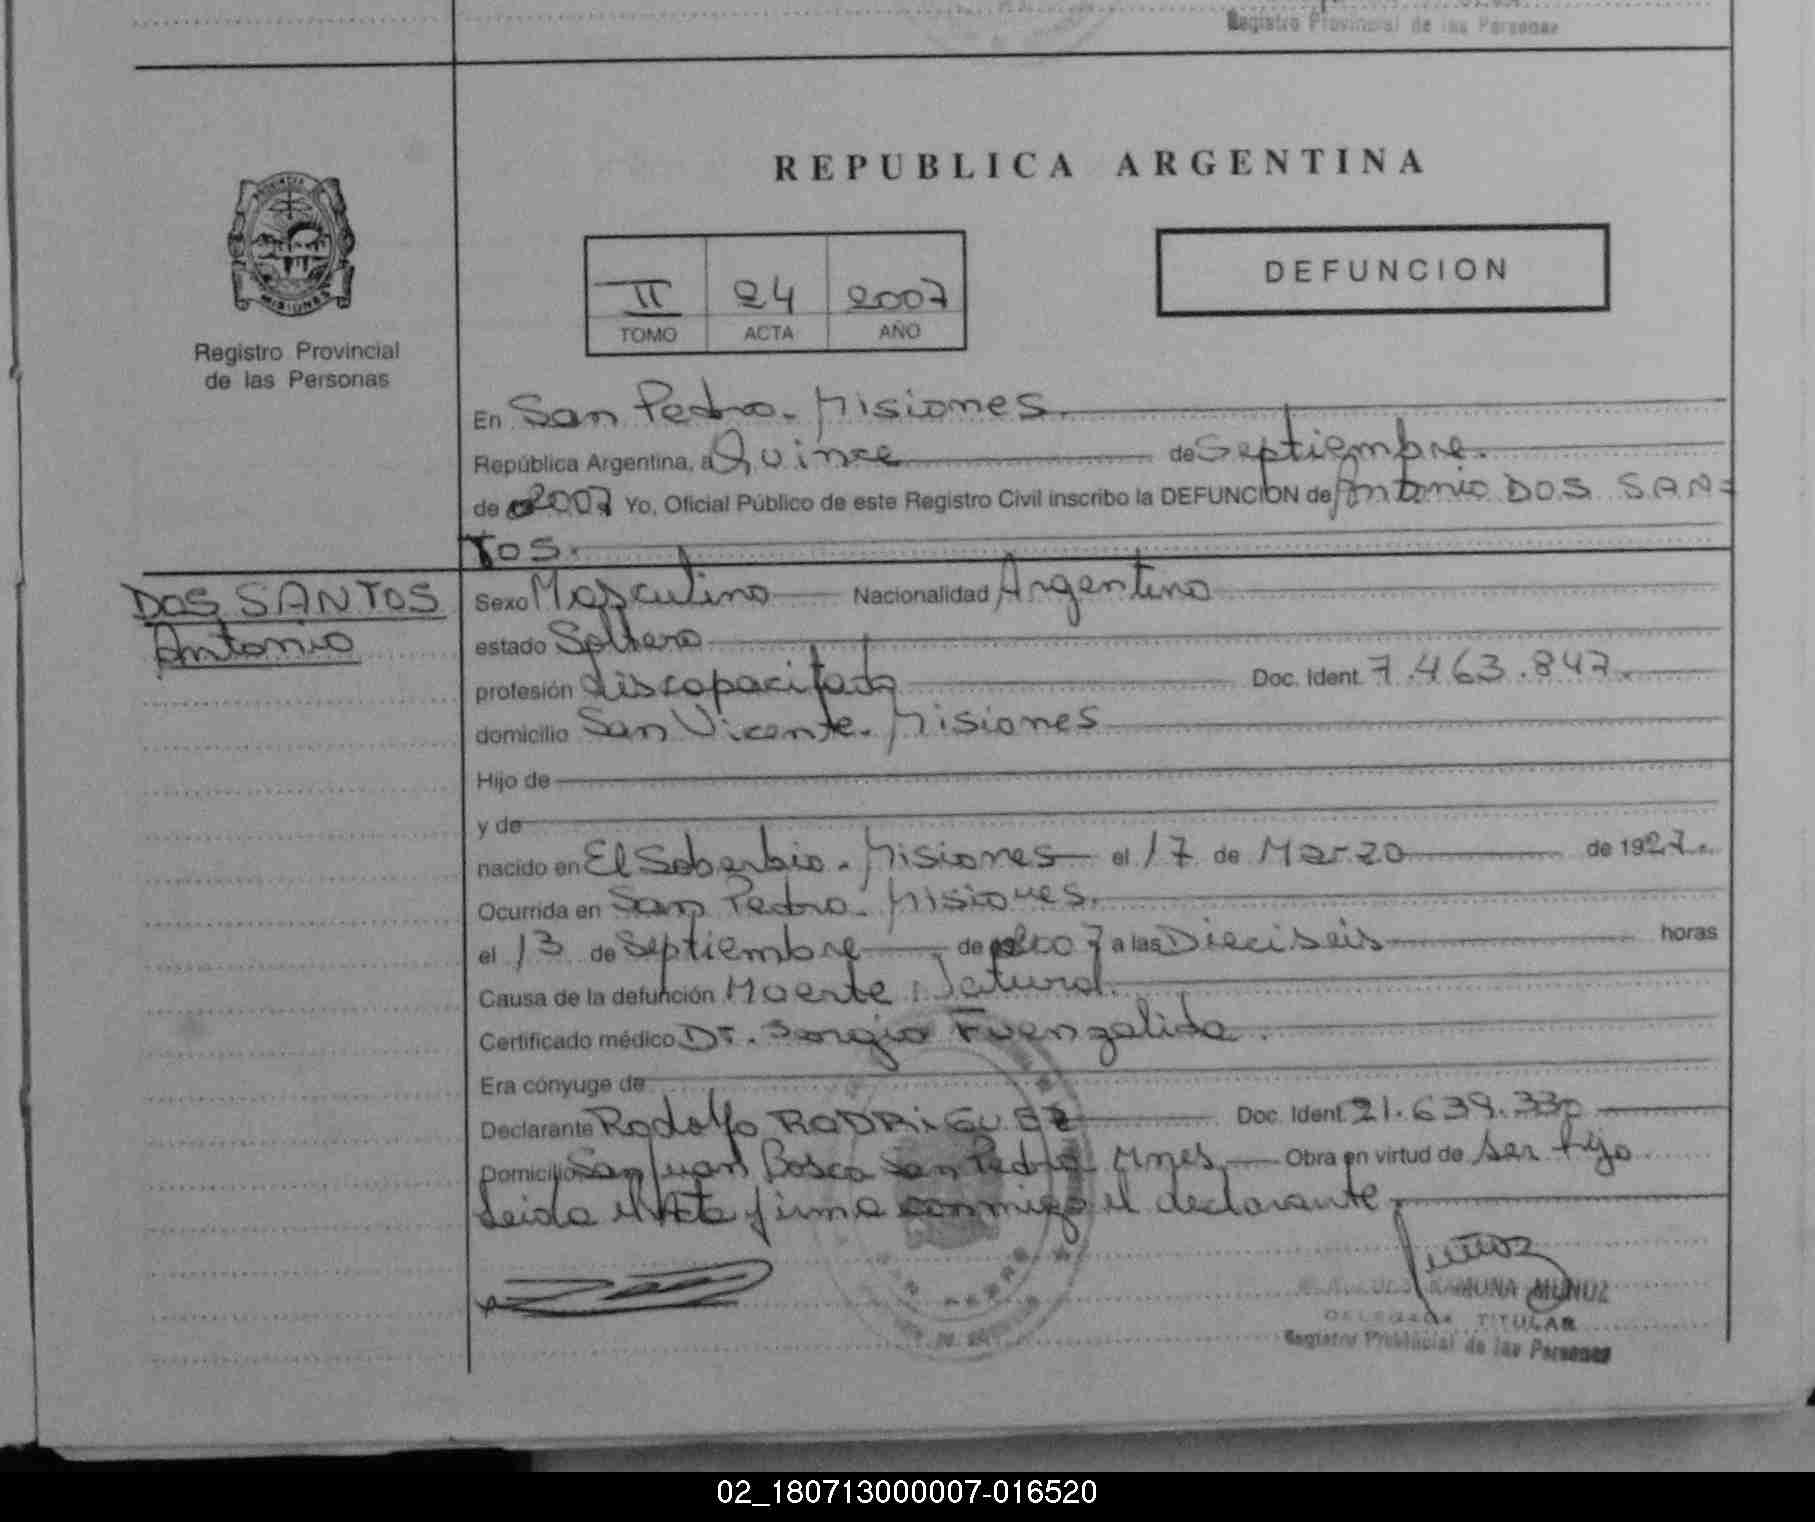 Registro Provincial de las Personas
REPUBLICA ARGENTINA
MISIONES
Registro Provincial
de las Personas
II 24 2007
TOMO ACTA AÑO
DEFUNCION
En San Pedro. Misiones.
República Argentina, a Quince de Septiembre.
de 2007 Yo, Oficial Público de este Registro Civil inscribo la DEFUNCION de Antonio DOS SAN=
TOS.
DOS SANTOS
Antonio
Sexo Masculino Nacionalidad Argentino
estado Soltero
profesión discapacitado Doc. Ident. 7.463.847.
domicilio San Vicente. Misiones
Hijo de
y de
nacido en El Soberbio. Misiones el 17 de Marzo de 1927.
Ocurrida en San Pedro. Misiones.
el 13 de Septiembre de 2007 a las Dieciseis horas
Causa de la defunción Muerte Natural.
Certificado médico Dr. Sergio Fuenzalida.
Era cónyuge de
Declarante Rodolfo RODRIGUEZ Doc. Ident. 21.639.330
Domicilio San Juan Bosco San Pedro Mnes. Obra en virtud de ser hijo
Leida el Acta firma conmigo el declarante.
Muñoz
RAMONA MUÑOZ
DELEGADA TITULAR
Registro Provincial de las Personas
02_180713000007-016520